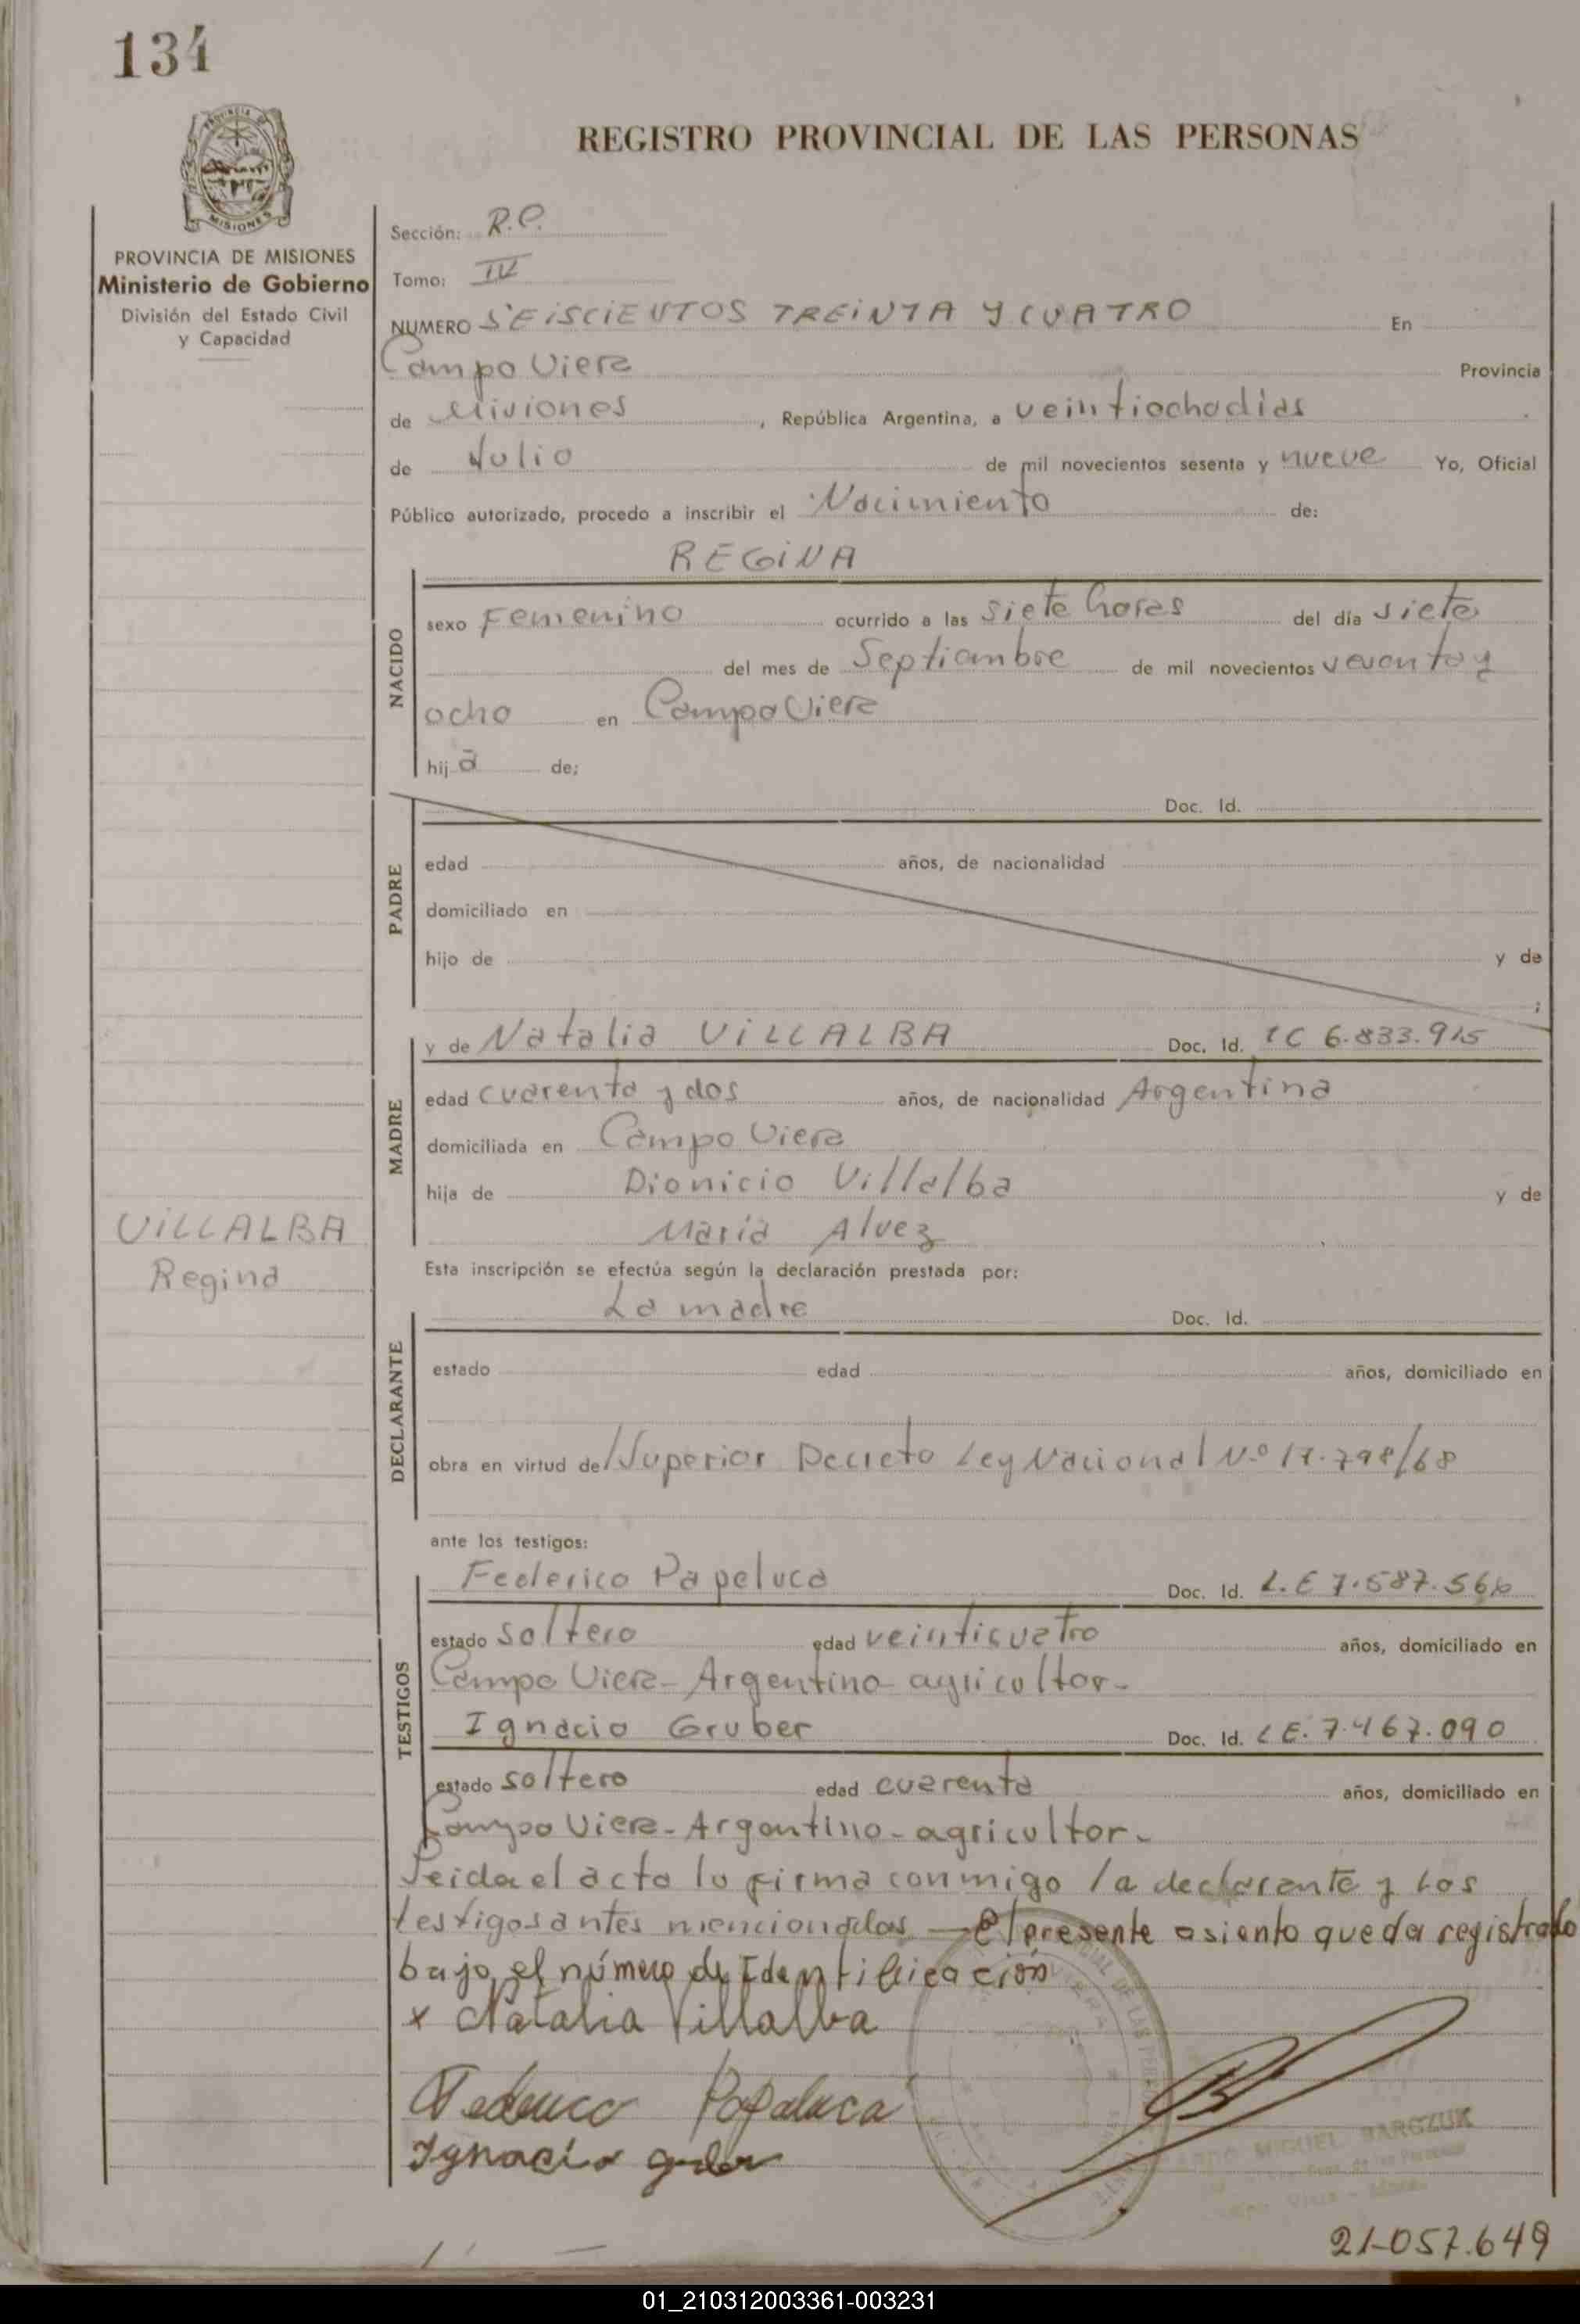 134
PROVINCIA DE MISIONES
REGISTRO PROVINCIAL DE LAS PERSONAS
PROVINCIA DE MISIONES
Ministerio de Gobierno
División del Estado Civil
y Capacidad
Sección: R.P.
Tomo: IV
NUMERO SEISCIENTOS TREINTA Y CUATRO En
Campo Viera Provincia
de Misiones, República Argentina, a veintiochodías
de Julio de mil novecientos sesenta y nueve Yo, Oficial
Público autorizado, procedo a inscribir el Nacimiento de:
REGINA
NACIDO
sexo Femenino ocurrido a las siete horas del día siete
del mes de Septiembre de mil novecientos sesenta y
ocho en Campo Viera
hija de:
PADRE
Doc. Id.
edad años, de nacionalidad
domiciliado en
hijo de y de
;
MADRE
y de Natalia VILLALBA Doc. Id. LC 6.833.915
edad cuarenta y dos años, de nacionalidad Argentina
domiciliada en Campo Viera
hija de Dionicio Villalba y de
María Alvez
VILLALBA
Regina
Esta inscripción se efectúa según la declaración prestada por:
DECLARANTE
La madre Doc. Id.
estado edad años, domiciliado en
obra en virtud de Superior Decreto Ley Nacional N.º 17.798/68
ante los testigos:
TESTIGOS
Federico Papeluca Doc. Id. L.E 7.587.566
estado soltero edad veinticuatro años, domiciliado en
Campo Viera - Argentino - agricultor -
Ignacio Gruber Doc. Id. LE. 7.467.090
estado soltero edad cuarenta años, domiciliado en
Campo Viera - Argentino - agricultor -
Leida el acta la firma conmigo la declarante y los
testigos antes mencionados — El presente asiento queda registrado
bajo el número de Identificación
x Natalia Villalba
Federico Papaluca
Ignacio
MIGUEL BARCZUK
21-057.649
01_210312003361-003231